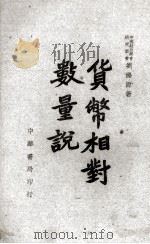 劉滌源著
貨幣相對
數量說
中華書局印行